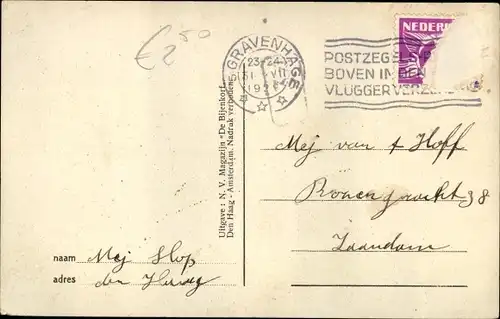 € 2⁵⁰
'S GRAVENHAGE
23-24
31 VII
19
POSTZEG
BOVEN IN DEN
VLUGGER VERZ
NEDER
Uitgave: N. V. Magazijn "De Bijenkorf"
Den Haag - Amsterdam. Nadruk verboden
Mej van 't Hoff
Rozengracht 38
Zaandam
naam Mej Slop
adres den Haag